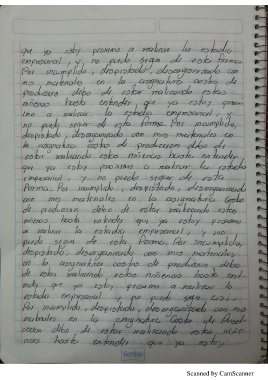 que ya estoy proximo a realizar la estadia
empresarial, y no puedo seguir de esta forma.
Por incumplido, despistado, desorganizado con
mis materiales en la asignatura costos de
produccion debo de estar realizando estas
hasta entender que ya estoy
a realizar la estadia empresarial, y
no puedo seguir de esta forma. Por incumplido,
despistado, desorganizado con mis materiales en
la asignatura costos de produccion debo de
estar realizando estas hasta entender
que ya estoy proximo a realizar la estadia
empresarial, y no puedo seguir de esta
forma. Por incumplido, despistado, desorganizado
con mis materiales en la asignatura costos
de produccion debo de estar realizando estas
hasta entender que ya estoy proximo
a realizar la estadia empresarial, y no
puedo seguir de esta forma. Por incumplido,
despistado, desorganizado con mis materiales
en la asignatura costos de produccion debo
de estar realizando estas hasta
que ya estoy proximo a realizar la
estadia empresarial y no puedo seguir
Por incumplido, despistado, desorganizado con mis
materiales en la asignatura costos de
debo de estar realizando estas
hasta entender que ya estoy
Scribe
Scanned by CamScanner